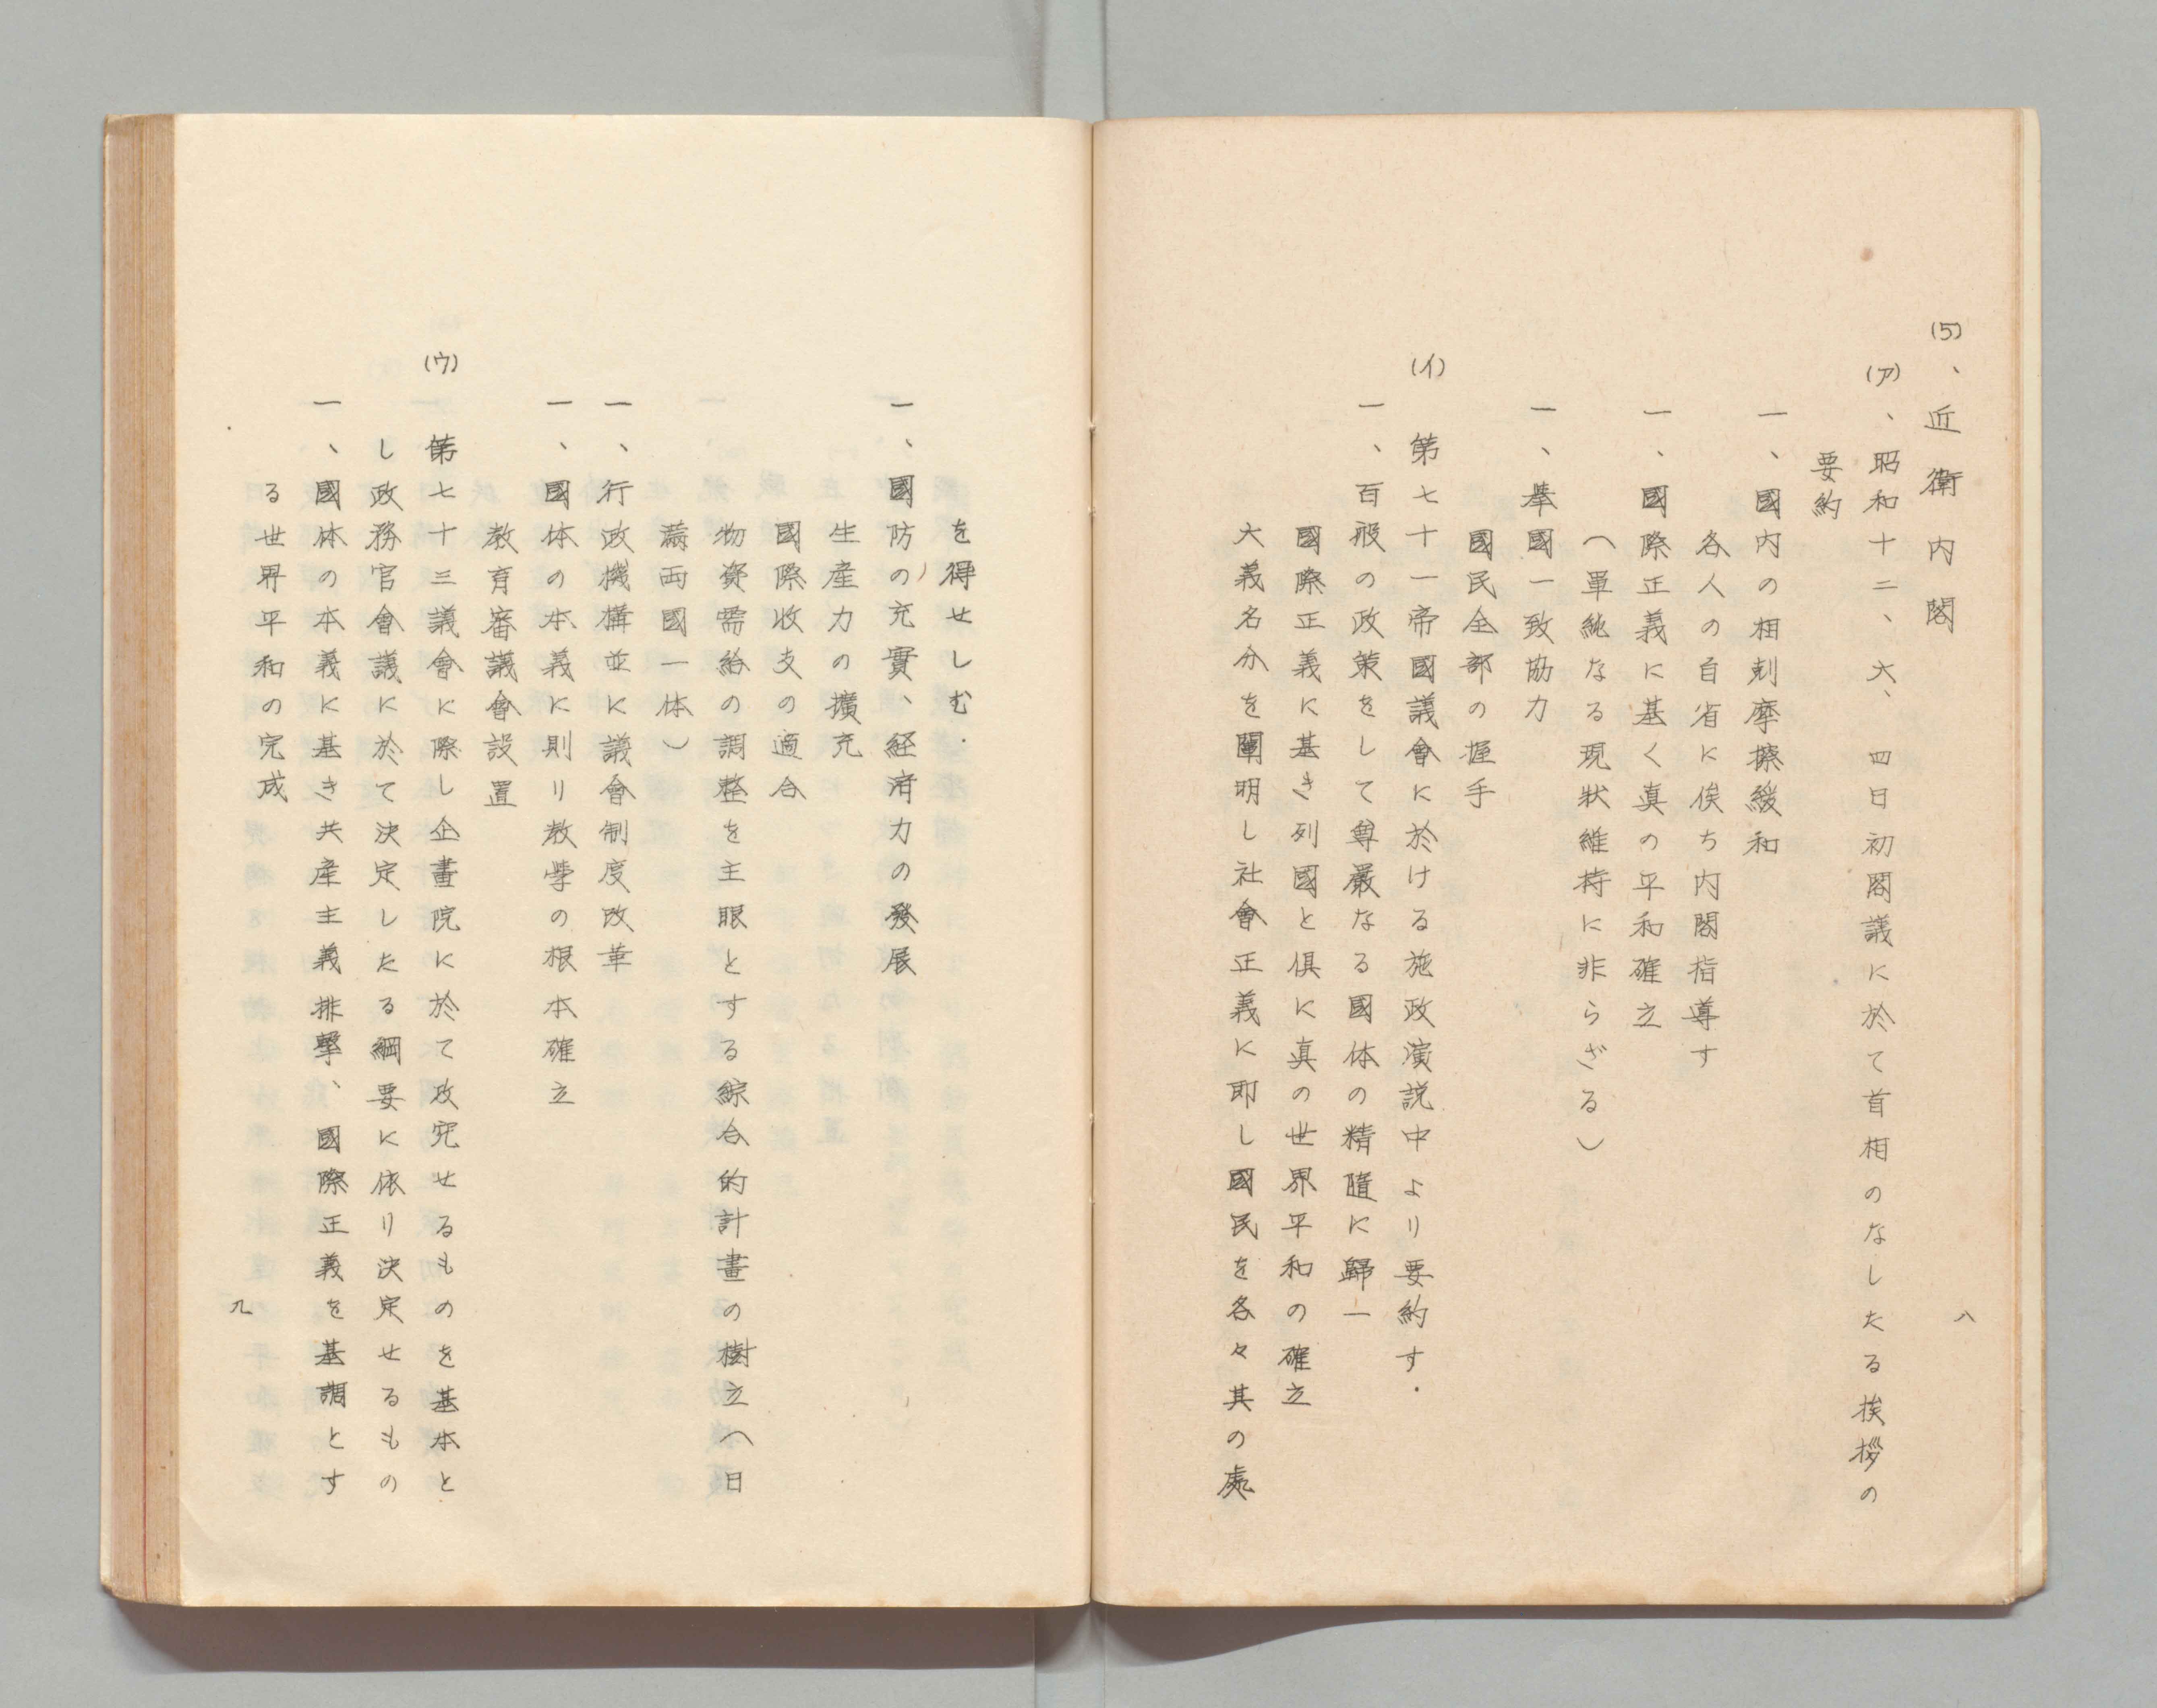 八
(5)、近衛内閣
(ア)、昭和十二、六、四日初閣議に於て首相のなしたる挨拶の
要約
一、國内の相剋摩擦緩和
各人の自省に俟ち内閣指導す
一、國際正義に基く真の平和確立
(単純なる現狀維持に非らざる)
一、挙國一致協力
國民全部の握手
(イ)第七十一帝國議會に於ける施政演説中より要約す.
一、百般の政策をして尊嚴なる國体の精随に歸一
國際正義に基き列國と俱に真の世界平和の確立
大義名分を闡明し社會正義に即し國民を各々其の處
を得せしむ.
一、國防の充實、経済力の發展
生産力の擴充
國際收支の適合
物資需給の調整を主眼とする綜合的計畫の樹立(日
満両國一体)
一、行政機構並に議會制度改革
一、國体の本義に則り教學の根本確立
教育審議會設置
(ウ)第七十三議會に際し企畫院に於て攻究せるものを基本と
し政務官會議に於て決定したる綱要に依り決定せるもの
一、國体の本義に基き共産主義排撃、國際正義を基調とす
る世界平和の完成
九